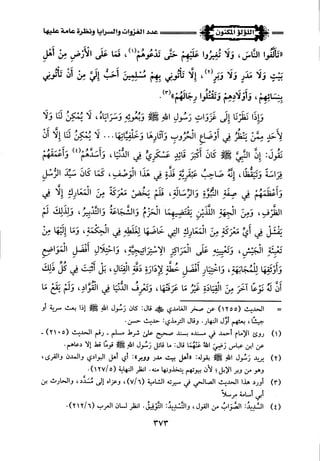 اللؤلؤ المكنون
عدد الغزوات والسرايا ونظرة عامة عليها
«تَأَلَّفُوا النَّاسَ، وَلَا تُغِيرُوا عَلَيْهِمْ حَتَّى تَدْعُوهُمْ(١)، فَمَا عَلَى الْأَرْضِ مِنْ أَهْلِ
بَيْتِ وَلَا مَدَرٍ وَلَا وَبَرٍ(٢)، إِلَّا تَأْتُونِي بِهِمْ مُسْلِمِينَ أَحَبُّ إِلَيَّ مِنْ أَنْ تَأْتُونِي
بِنِسَائِهِمْ، وَأَوْلَادِهِمْ، وَتَقْتُلُوا رِجَالَهُمْ»(٣).
وَإِذَا نَظَرْنَا إِلَى غَزَوَاتِ رَسُولِ اللهِ ﷺ وَبُعُوثِهِ وَسَرَايَاهُ، لَا يُمْكِنُ لَنَا وَلَا
لِأَحَدٍ مِمَّنْ يَنْظُرُ فِي أَوْضَاعِ الْحُرُوبِ وَآثَارِهَا وَخَلْفِيَّاتِهَا... لَا يُمْكِنُ لَنَا إِلَّا أَنْ
نَقُولَ: إِنَّ النَّبِيَّ ﷺ كَانَ أَكْبَرَ قَائِدٍ عَسْكَرِيٍّ فِي الدُّنْيَا، وَأَسَدَّهُمْ(٤) وَأَعْمَقَهُمْ
فِرَاسَةً وَتَيَقُّظًا، إِنَّهُ صَاحِبُ عَبْقَرِيَّةٍ فَذَّةٍ فِي هَذَا الْوَصْفِ، كَمَا كَانَ سَيِّدَ الرُّسُلِ
وَأَعْظَمَهُمْ فِي صِفَةِ النُّبُوَّةِ وَالرِّسَالَةِ، فَلَمْ يَخُضْ مَعْرَكَةً مِنَ الْمَعَارِكِ إِلَّا فِي
الظَّرْفِ، وَمِنَ الْجِهَةِ اللَّذَيْنِ يَقْتَضِيهِمَا الْحَزْمُ وَالشَّجَاعَةُ وَالتَّدْبِيرُ، وَلِذَلِكَ لَمْ
يَفْشَلْ فِي أَيِّ مَعْرَكَةٍ مِنَ الْمَعَارِكِ الَّتِي خَاضَهَا لِغَلْطَةٍ فِي الْحِكْمَةِ، وَمَا إِلَيْهَا مِنْ
تَعْبِئَةِ الْجَيْشِ، وَتَعْيِينِهِ عَلَى الْمَرَاكِزِ الِاسْتِرَاتِيجِيَّةِ، وَاحْتِلَالِ أَفْضَلِ الْمَوَاضِعِ
وَأَوْثَقِهَا لِلْمُجَابَهَةِ، وَاخْتِيَارِ أَفْضَلِ خُطَّةٍ لِإِدَارَةِ دَفَّةِ الْقِتَالِ، بَلْ أَثْبَتَ فِي كُلِّ ذَلِكَ
أَنَّ لَهُ نَوْعًا آخَرَ مِنَ الْقِيَادَةِ غَيْرَ مَا عَرَفَتْهَا، وَتَعْرِفُهُ الدُّنْيَا فِي الْقُوَّادِ، وَلَمْ يَقَعْ مَا
= الحديث (١٢٥٥) عن مرسل
حبيب، ولم أره. وقال الترمذي: حديث حسن.
(١) روى الإمام أحمد في مسنده بسند صحيح على شرط مسلم - رقم الحديث (٢١٠٥) -
عن ابن عباس رضي الله عنهما قال: ما قاتل رسول الله ﷺ قومًا إلا دعاهم.
(٢) يريد رسول الله ﷺ بقوله: «أهل بيت مدر ولا وبر»: أي أهل البوادي والمدن والقرى،
وهو من وبر الإبل؛ لأن بيوتهم يتخذونها منه. انظر النهاية (١٢٧/٥).
(٣) أورد هذا الحديث الصالحي في سيرته الشامية (٧/٦)، وعزاه إلى مسدد، والحارث بن
أبي أسامة مرسلاً.
(٤) السَّدِيدُ: الصَّوَابُ من القول، والتَّسْدِيدُ: التَّوْفِيقُ. انظر لسان العرب (٢١٢/٦).
٣٧٣